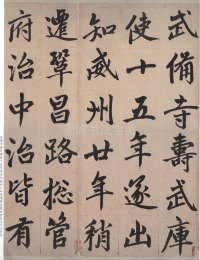 武備寺壽武庫
使十五年遂出
知威州廿年稍
遷鞏昌路総管
府治中治皆有